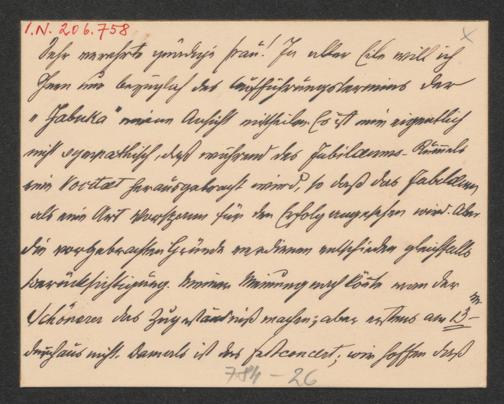 I.N. 206.758
Sehr verehrte gnädige Frau! In aller Eile will ich
Ihnen nur bezüglich des Aufführungstermins der
"Jabuka" meine Ansicht mittheilen. Es ist mir eigentlich
nicht sympathisch, daß während des Jubiläums-Rummels
ein Novität herausgebracht wird, so daß das Jubiläum
als eine Art Vorspann für den Erfolg angesehen wird. Aber
die vorgebrachten Gründe verdienen entschieden gleichfalls
Berücksichtigung. Meiner Meinung nach könnte man der
Schönerer das Zugeständniß machen; aber erstens am 13ten
durchaus nicht. Damals ist das Festconcert; wir hoffen daß
784 - 26